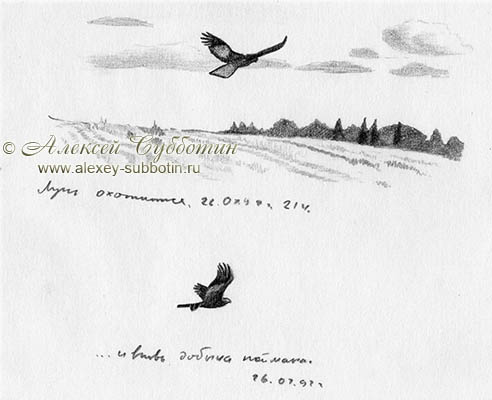 © Алексей Субботин
www.alexey-subbotin.ru
Лунь охотится. 21 ч.
... и вновь добыча поймана.
26.07.97 г.